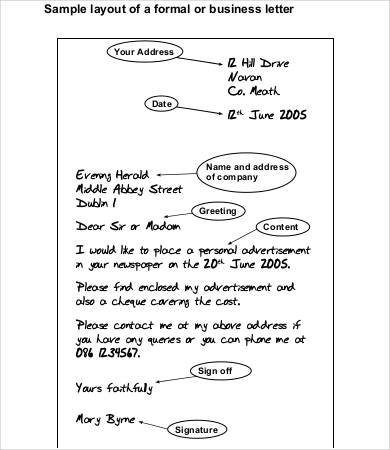 Sample layout of a formal or business letter
Your Address
12 Hill Drive
Navan
Co. Meath
Date
12th June 2005
Name and address
of company
Evening Herald
Middle Abbey Street
Dublin 1
Greeting
Dear Sir or Madam
Content
I would like to place a personal advertisement
in your newspaper on the 20th June 2005.
Please find enclosed my advertisement and
also a cheque covering the cost.
Please contact me at my above address if
you have any queries or you can phone me at
086 1234567.
Sign off
Yours faithfully
Mary Byrne
Signature